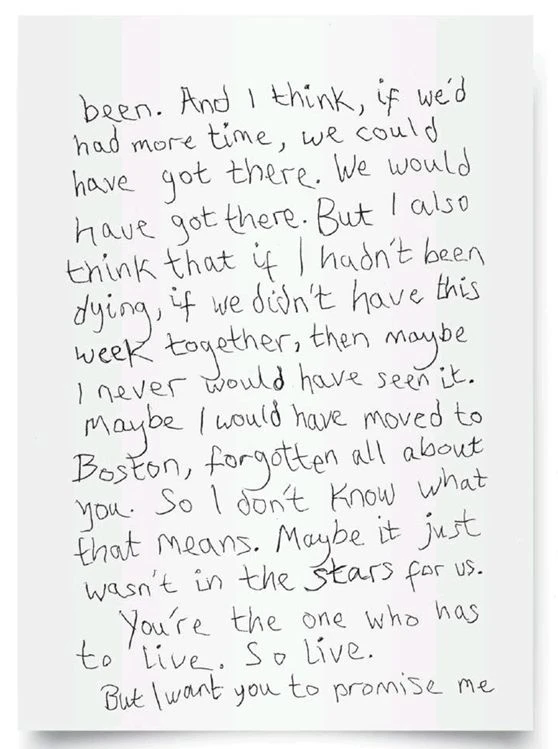 been. And I think, if we'd
had more time, we could
have got there. We would
have got there. But I also
think that if I hadn't been
dying, if we didn't have this
week together, then maybe
I never would have seen it.
Maybe I would have moved to
Boston, forgotten all about
you. So I don't know what
that means. Maybe it just
wasn't in the stars for us.
You're the one who has
to live. So live.
But I want you to promise me